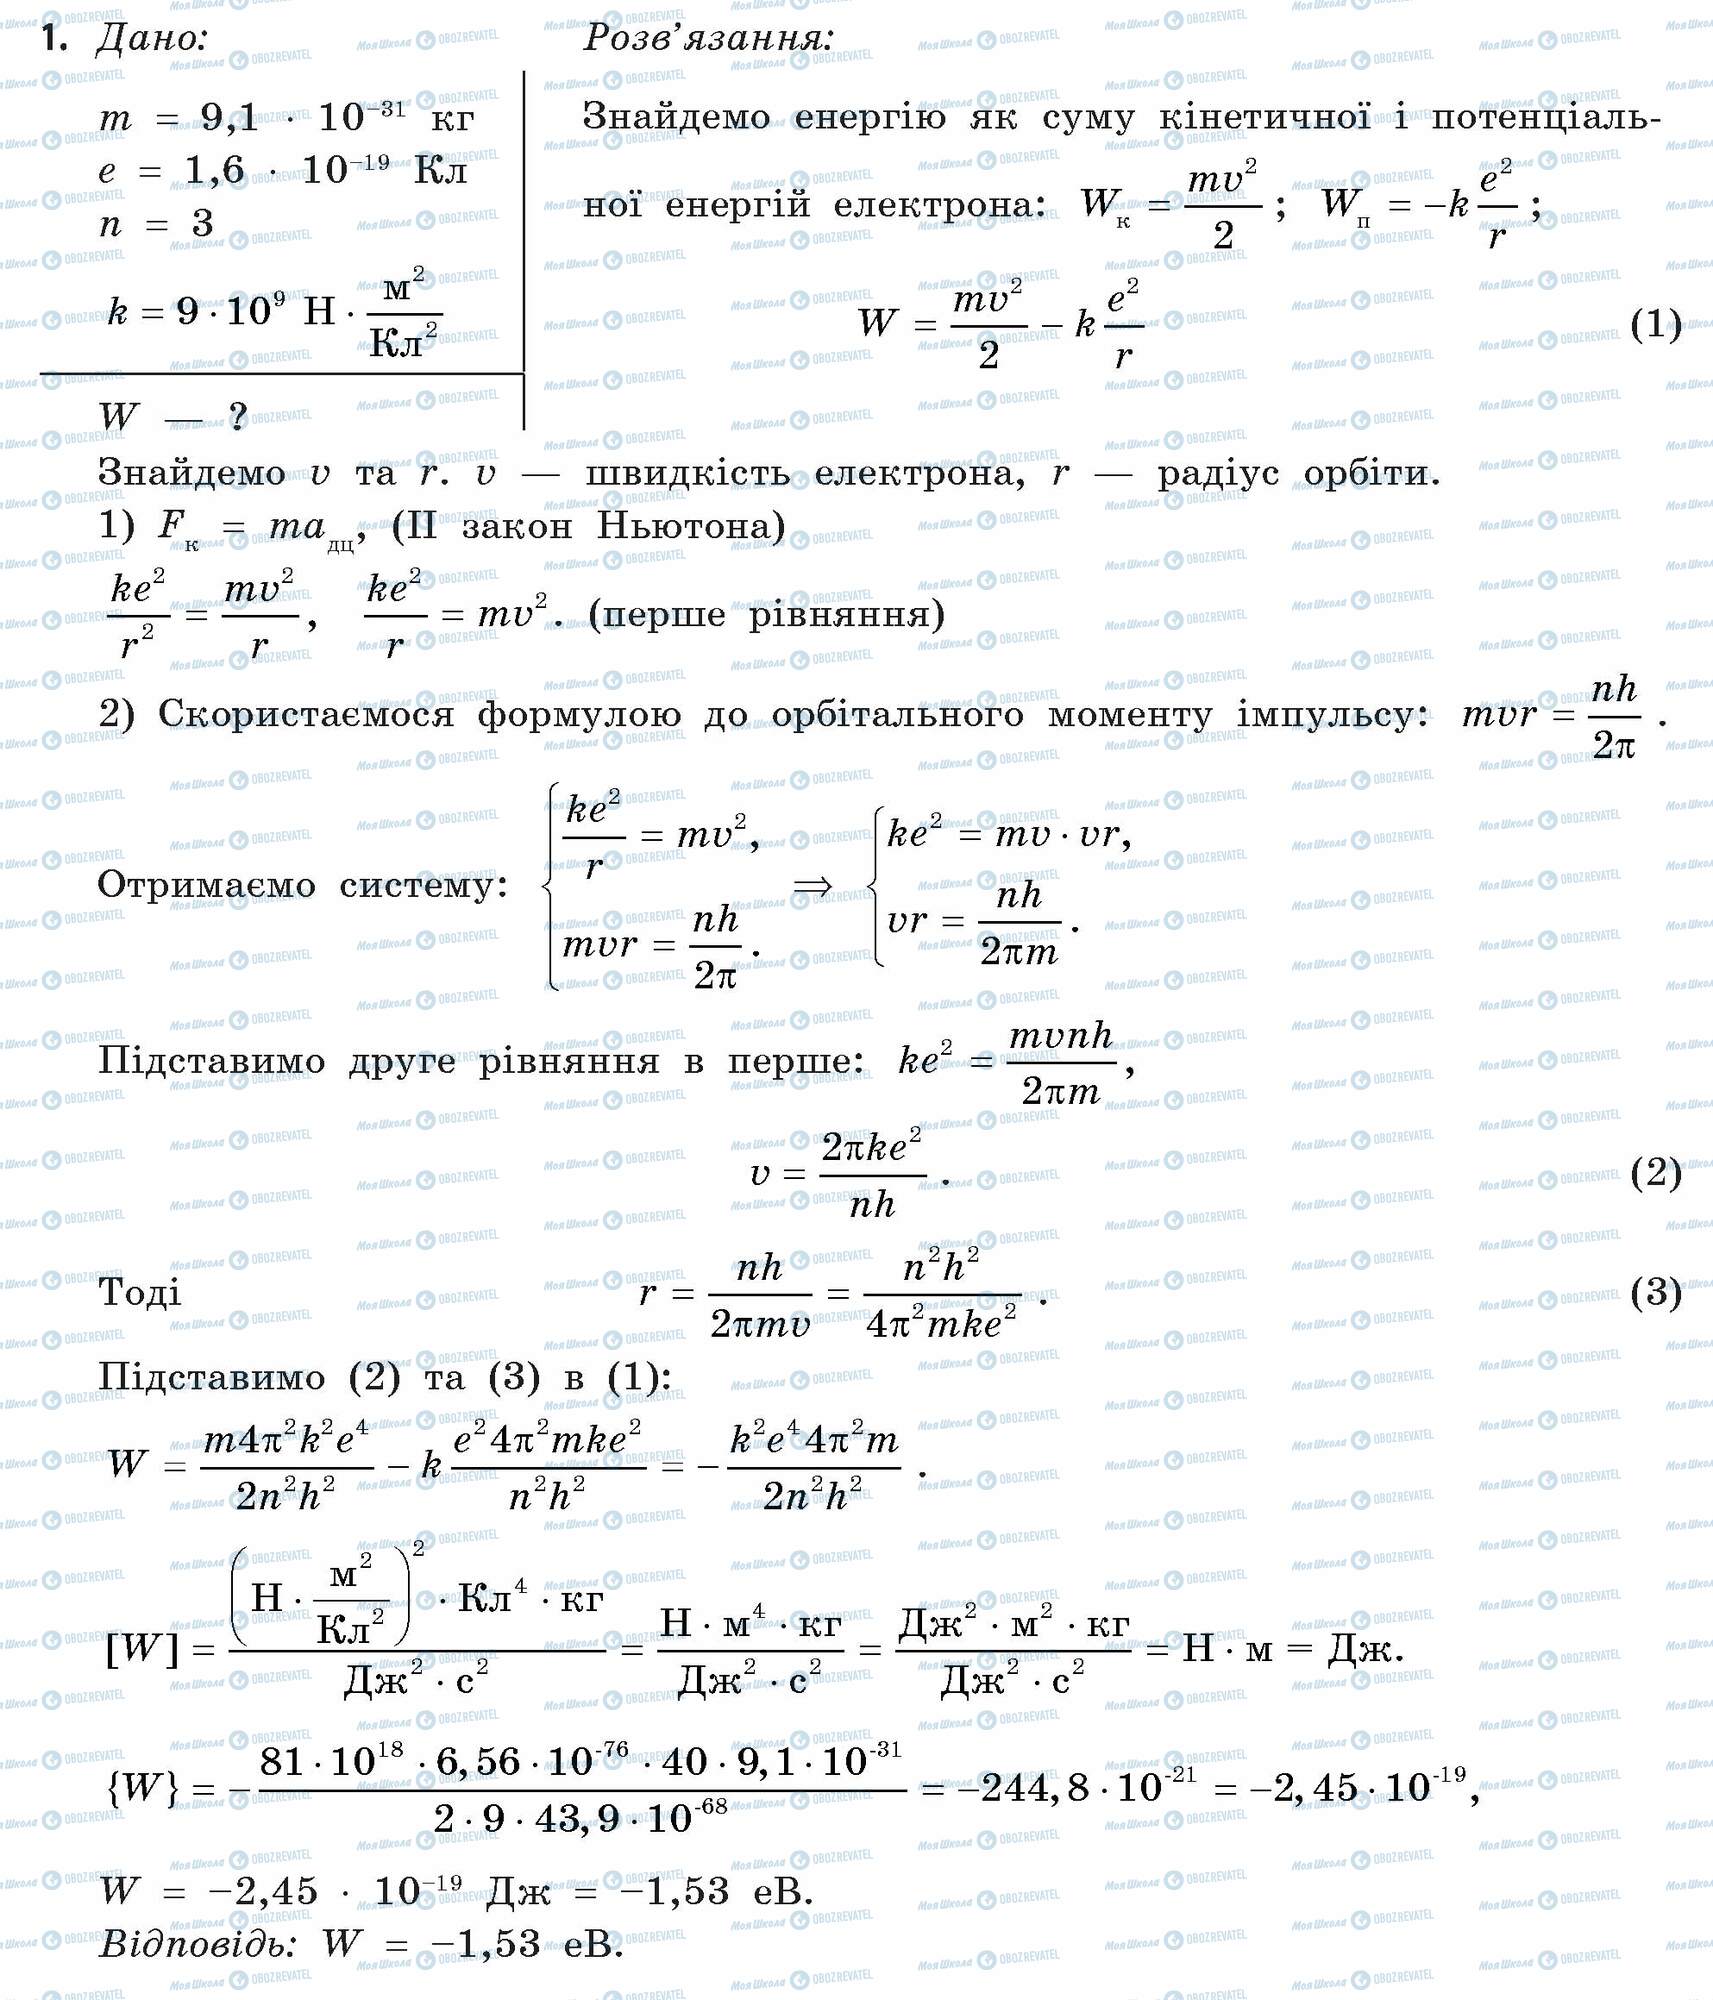 1. Дано:
m = 9,1 · 10⁻³¹ кг
e = 1,6 · 10⁻¹⁹ Кл
n = 3
k = 9 · 10⁹ Н · м²/Кл²
W — ?
Розв’язання:
Знайдемо енергію як суму кінетичної і потенціаль-
ної енергій електрона: Wк = mv²/2 ; Wп = –k e²/r ;
W = mv²/2 – k e²/r (1)
Знайдемо v та r. v — швидкість електрона, r — радіус орбіти.
1) Fк = maдц, (II закон Ньютона)
ke²/r² = mv²/r, ke²/r = mv². (перше рівняння)
2) Скористаємося формулою до орбітального моменту імпульсу: mvr = nh/2π .
Отримаємо систему: { ke²/r = mv², mvr = nh/2π . ⇒ { ke² = mv · vr, vr = nh/2πm .
Підставимо друге рівняння в перше: ke² = mvnh/2πm,
v = 2πke²/nh . (2)
Тоді r = nh/2πmv = n²h²/4π²mke² . (3)
Підставимо (2) та (3) в (1):
W = m4π²k²e⁴/2n²h² – k e²4π²mke²/n²h² = – k²e⁴4π²m/2n²h² .
[W] = (Н · м²/Кл²)² · Кл⁴ · кг / Дж² · с² = Н · м⁴ · кг / Дж² · с² = Дж² · м² · кг / Дж² · с² = Н · м = Дж.
{W} = – 81 · 10¹⁸ · 6,56 · 10⁻⁷⁶ · 40 · 9,1 · 10⁻³¹ / 2 · 9 · 43,9 · 10⁻⁶⁸ = –244,8 · 10⁻²¹ = –2,45 · 10⁻¹⁹,
W = –2,45 · 10⁻¹⁹ Дж = –1,53 еВ.
Відповідь: W = –1,53 еВ.